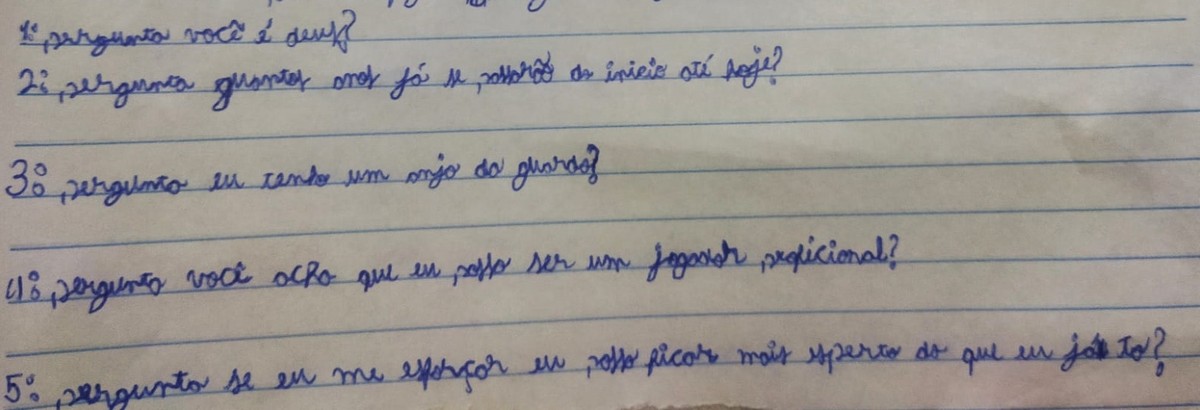 1: pergunta você é deus?
2: pergunta quantos anos já se passarão do inicio até hoje?
3: pergunta eu tenho um anjo da guarda?
4: pergunta você acha que eu posso ser um jogador proficional?
5: pergunta se eu me esforçar eu posso ficar mais esperto do que eu já to?